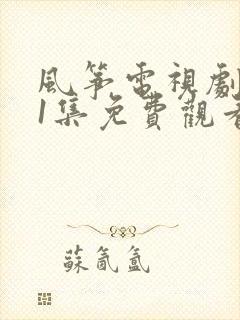 風箏電視劇
1集免費觀看
蘇氤氳